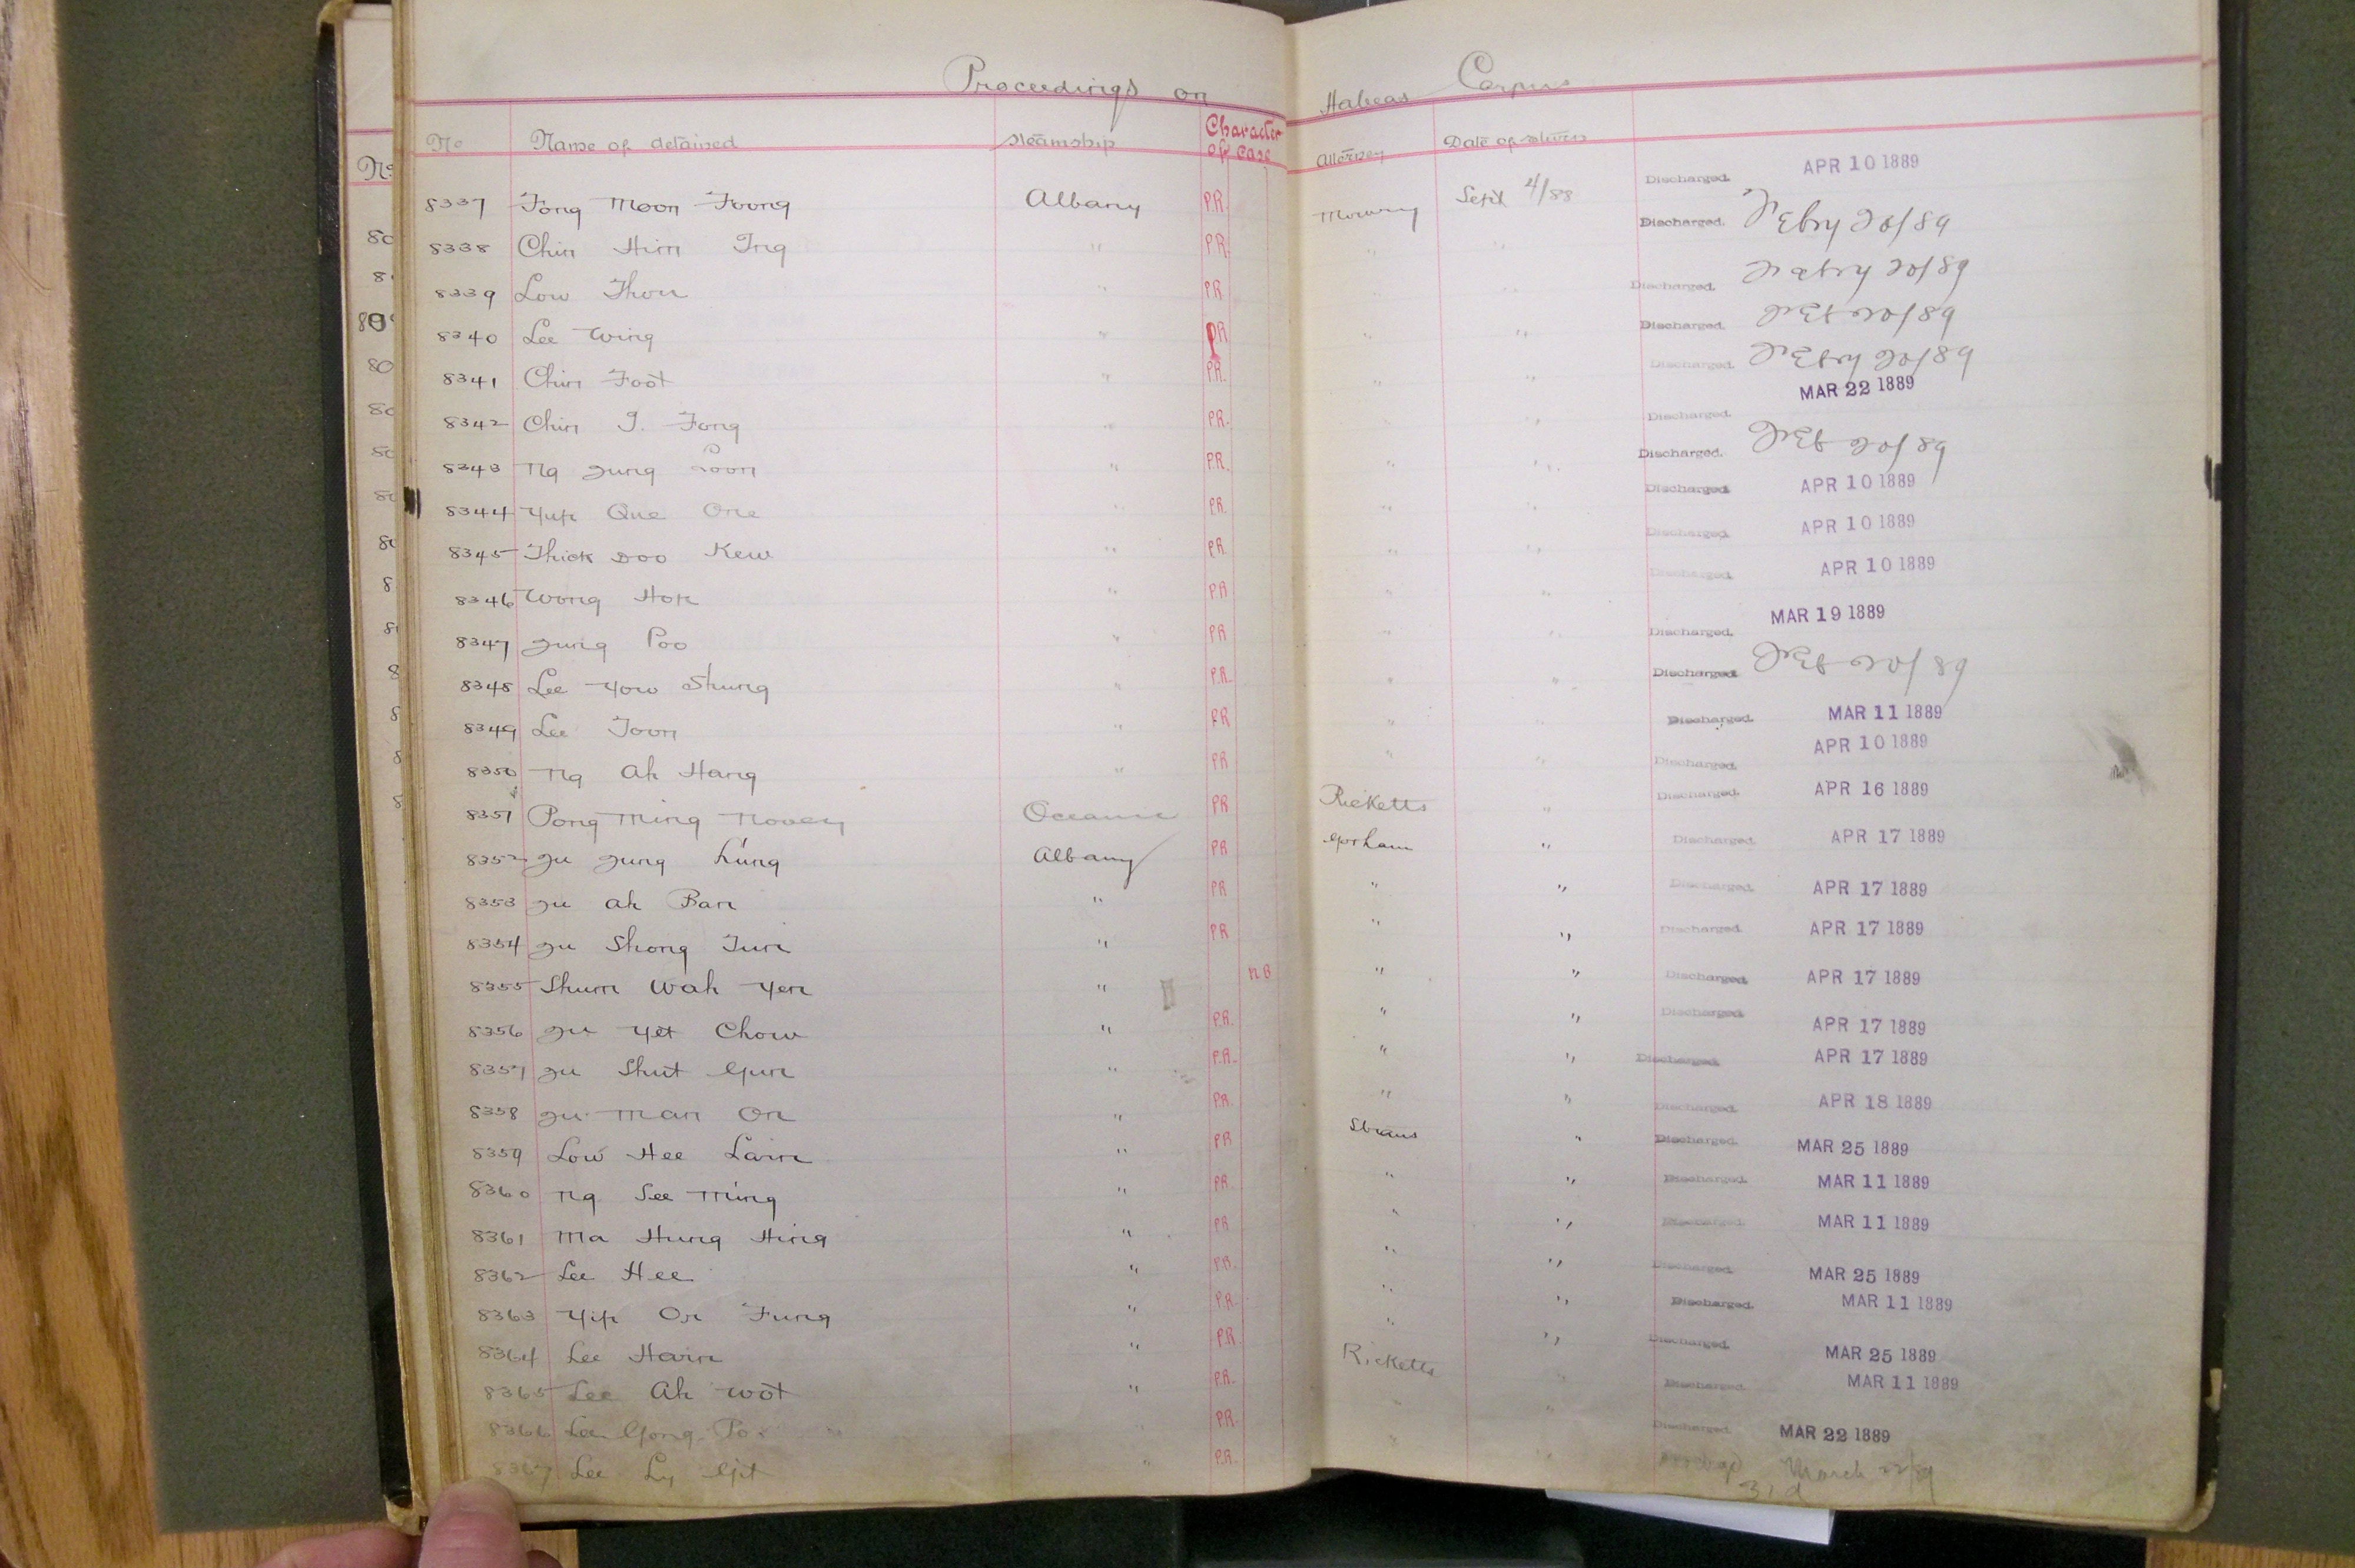 Proceedings on Habeas Corpus
No Name of detained Steamship Character of case Attorney Date of return
8337 Fong Moon Foong Albany P.R. Mowry Sept 4/88 Discharged. APR 10 1889
8338 Chin Him Ing " P.R. " " Discharged. Feby 20/89
8339 Low Thou " P.R. " " Discharged. Feby 20/89
8340 Lee Wing " P.R. " " Discharged. Feb 20/89
8341 Chin Foot " P.R. " " Discharged. Feby 20/89
8342 Chin G. Fong " P.R. " " Discharged. MAR 22 1889
8343 Ng Jung Loon " P.R. " " Discharged. Feb 20/89
8344 Yup Que One " P.R. " " Discharged. APR 10 1889
8345 Thick Doo Kew " P.R. " " Discharged. APR 10 1889
8346 Wong Hok " P.R. " " Discharged. APR 10 1889
8347 Jung Poo " P.R. " " Discharged. MAR 19 1889
8348 Lee Yow Shung " P.R. " " Discharged. Feb 20/89
8349 Lee Toon " P.R. " " Discharged. MAR 11 1889
8350 Ng Ah Hang " P.R. " " Discharged. APR 10 1889
8351 Pong Ming Oceanic P.R. Ricketts " Discharged. APR 16 1889
8352 Ju Jung Lung Albany P.R. Gorham " Discharged. APR 17 1889
8353 Ju Ah Ban " P.R. " " Discharged. APR 17 1889
8354 Ju Shong Tun " P.R. " " Discharged. APR 17 1889
8355 Shum Wah Yen " N B " " Discharged. APR 17 1889
8356 Ju Yet Chow " P.R. " " Discharged. APR 17 1889
8357 Ju Shut Gun " P.R. " " Discharged. APR 17 1889
8358 Ju Man On " P.R. " " Discharged. APR 18 1889
8359 Low Hee Lain " P.R. Straus " Discharged. MAR 25 1889
8360 Ng See Ming " P.R. " " Discharged. MAR 11 1889
8361 Ma Hung Hing " P.R. " " Discharged. MAR 11 1889
8362 Lee Hee " P.R. " " Discharged. MAR 25 1889
8363 Yip On Fung " P.R. " " Discharged. MAR 11 1889
8364 Lee Hain " P.R. " " Discharged. MAR 25 1889
8365 Lee Ah Wot " P.R. Ricketts " Discharged. MAR 11 1889
8366 Lee Gong Po " P.R. " " Discharged. MAR 22 1889
8367 Lee Ly Git " P.R. " " March 22/89